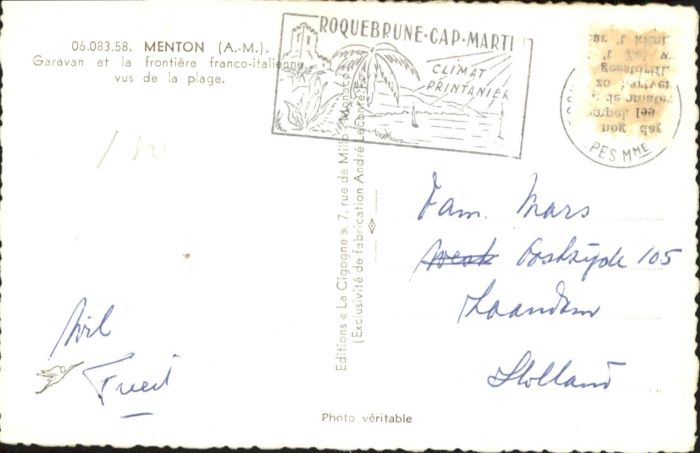 06.083.58. MENTON (A.-M.).
Garavan et la frontière franco-italienne
vus de la plage.
ROQUEBRUNE-CAP-MARTI
CLIMAT
PRINTANIER
PES MME
Editions « La Cigogne », 7, rue de Millo, Monaco
(Exclusivité de fabrication André Leconte)
Fam. Mars
Oostzijde 105
Zaandam
Holland
Wil
Truus
Photo véritable